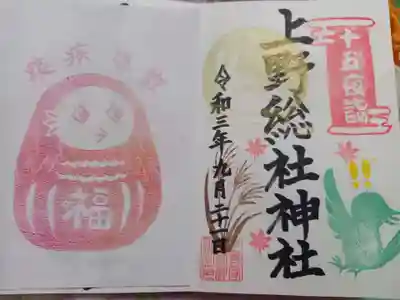 十五夜詣
上野総社神社
令和三年九月二十一日
福